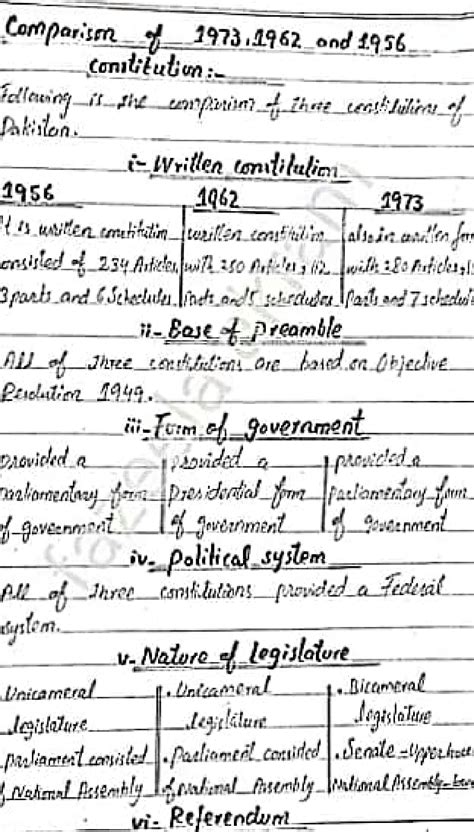 Comparison of 1973, 1962 and 1956
constitution:-
Following is the comparison of three constitutions of
Pakistan.
i- Written constitution
1956 1962 1973
It is written constitution written constitution also in written form
consisted of 234 Articles, with 250 Articles, 112 with 280 Articles,
3 parts and 6 Schedules. Parts and 5 schedules Parts and 7 schedules
ii- Base of Preamble
All of three constitutions are based on Objective
Resolution 1949.
iii- Form of government
provided a provided a provided a
parliamentary form presidential form parliamentary form
of government of government of government
iv- Political system
All of three constitutions provided a Federal
system.
v- Nature of legislature
Unicameral . Unicameral . Bicameral
legislature legislature legislature
parliament consisted . Parliament consisted . Senate - Upper house
of National Assembly of National Assembly National Assembly -
vi- Referendum
fazeela